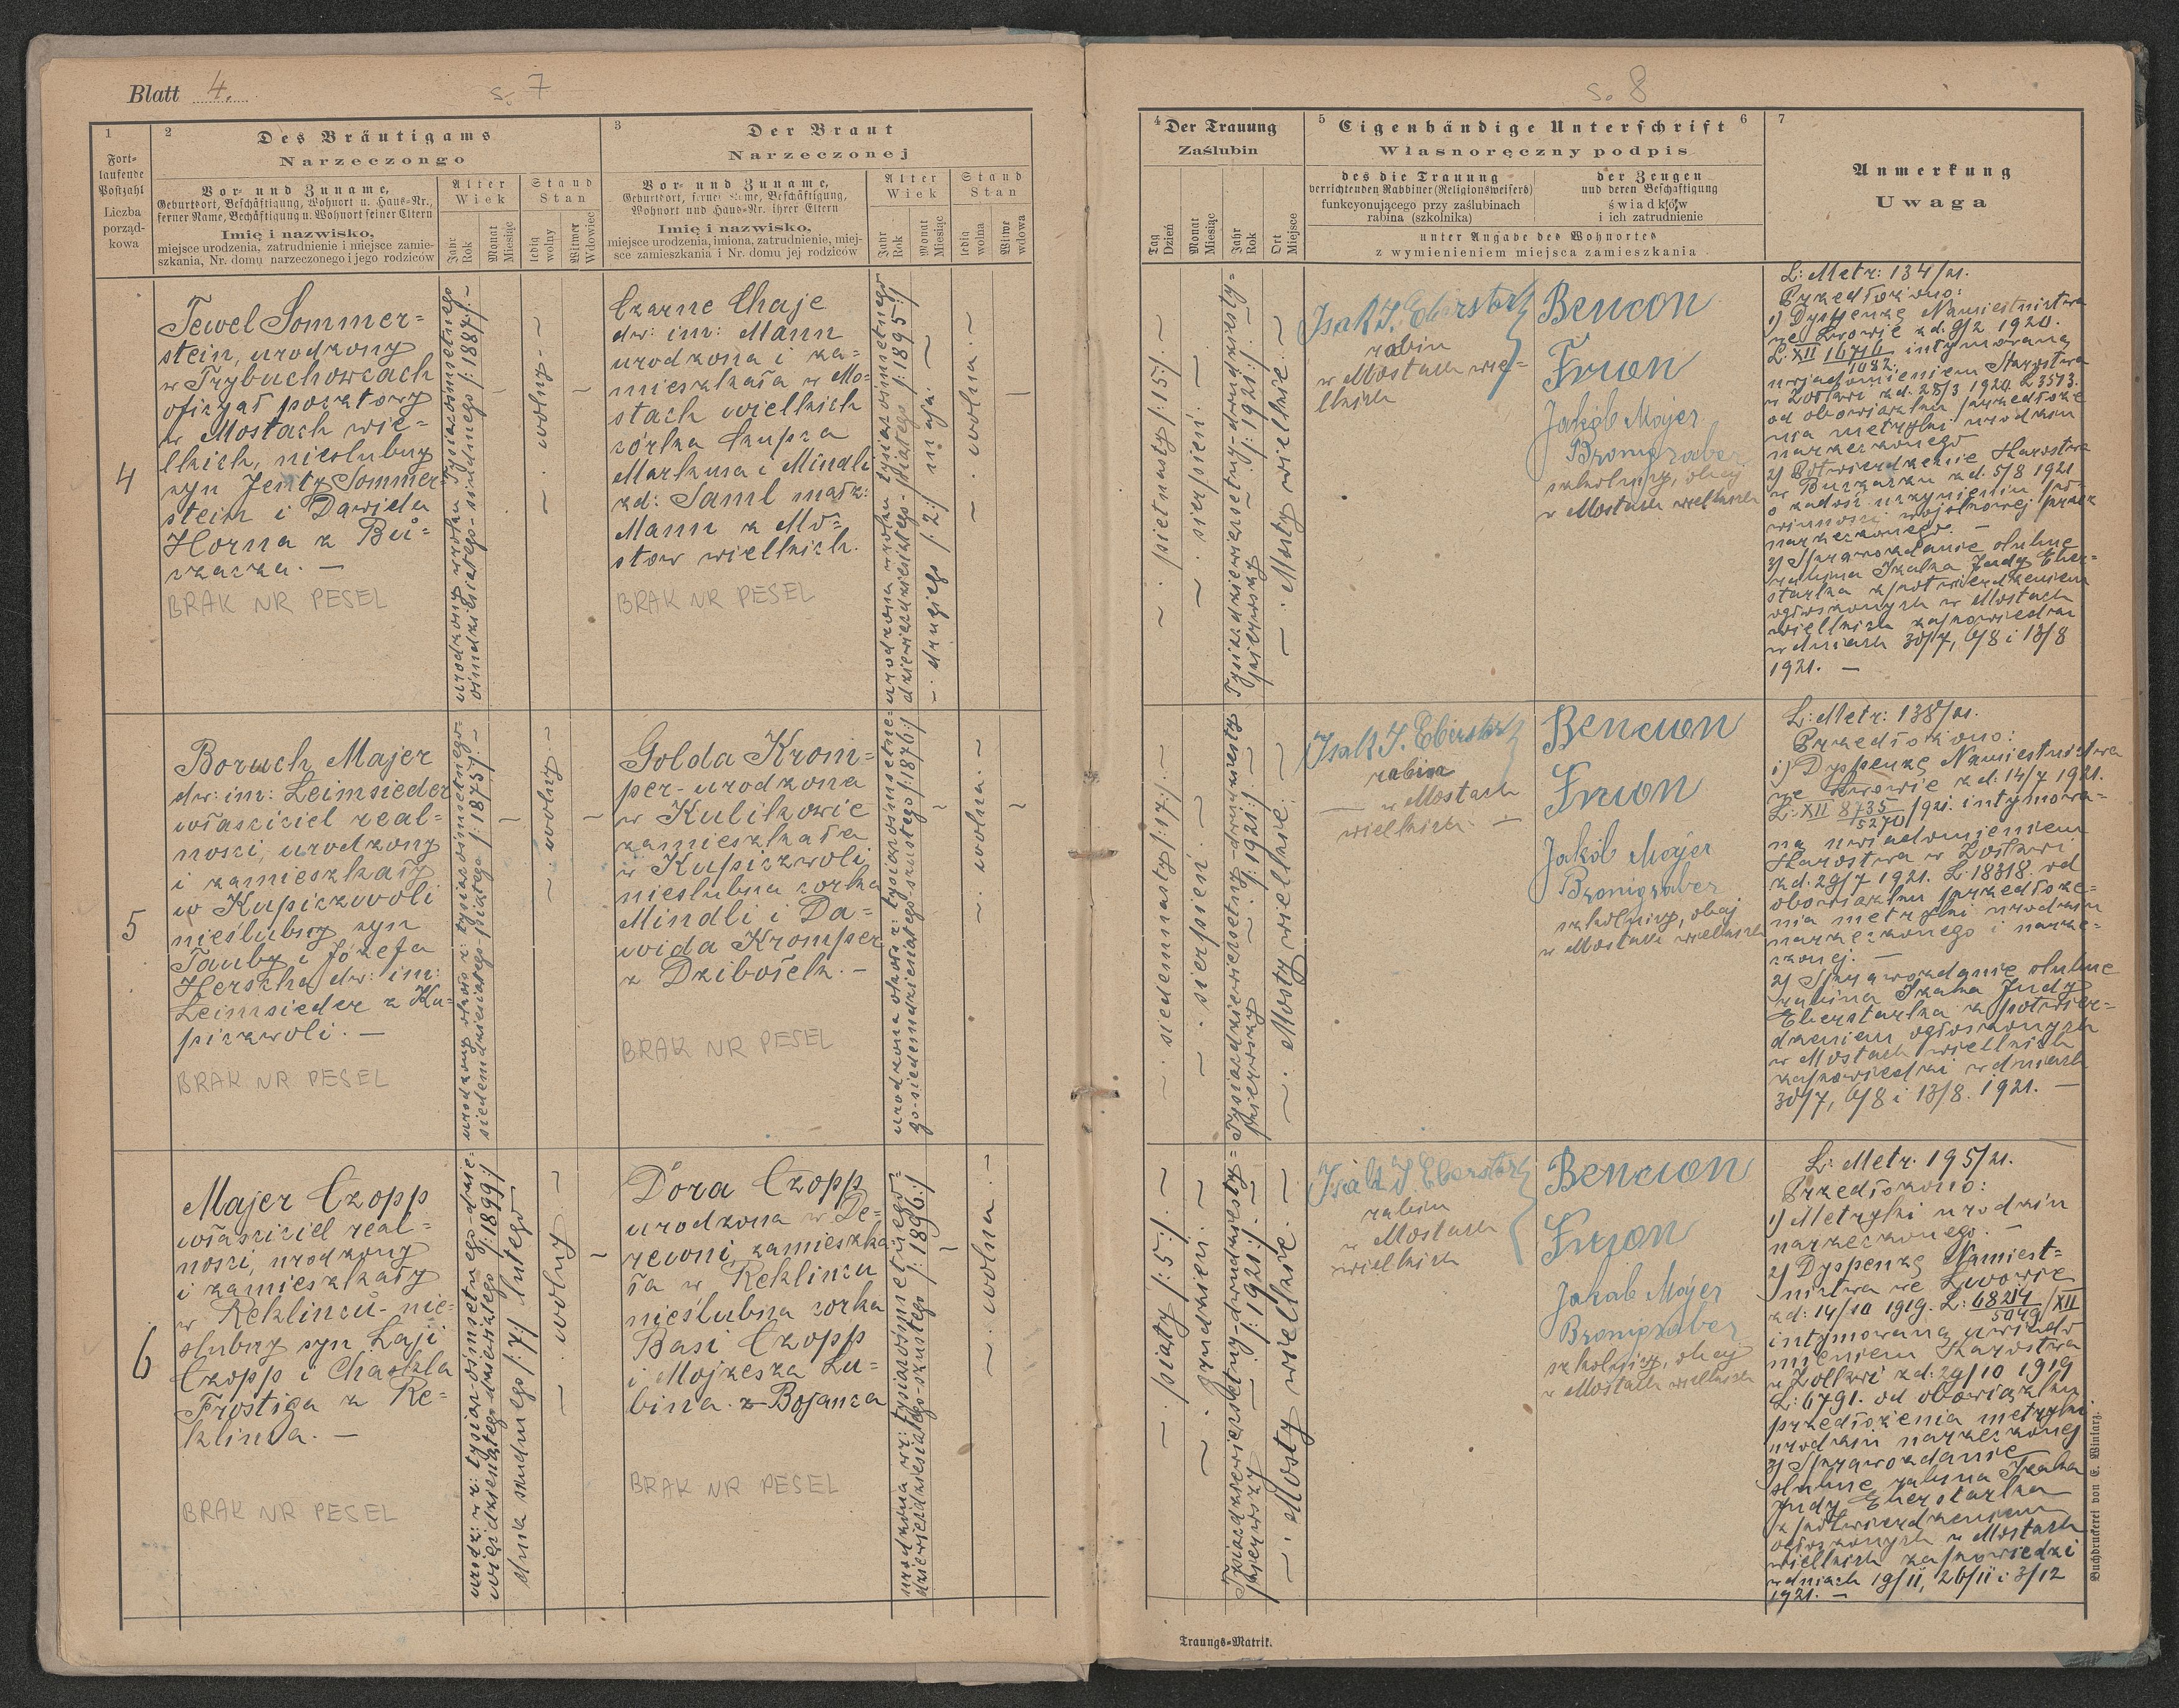 Blatt 4.
s. 7
1
Fort-
laufende
Postzahl
Liczba
porząd-
kowa
2
Des Bräutigams
Narzeczongo
Vor- und Zuname,
Geburtsort, Beschäftigung, Wohnort u. Haus-Nr.,
ferner Name, Beschäftigung u. Wohnort seiner Eltern
Imię i nazwisko,
miejsce urodzenia, zatrudnienie i miejsce zamie-
szkania, Nr. domu narzeczonego i jego rodziców
Alter
Wiek
Jahr
Rok
Monat
Miesiąc
Stand
Stan
ledig
wolny
Witwer
Wdowiec
3
Der Braut
Narzeczonej
Vor- und Zuname,
Geburtsort, ferner Name, Beschäftigung,
Wohnort und Haus-Nr. ihrer Eltern
Imię i nazwisko,
miejsce urodzenia, imiona, zatrudnienie, miej-
sce zamieszkania i Nr. domu jej rodziców
Alter
Wiek
Jahr
Rok
Monat
Miesiąc
Stand
Stan
ledig
wolna
Witwe
wdowa
4
Tewel Sommer=
stein, urodzony
w Trybuchowcach
oficyał pocztowy
w Mostach wie=
lkich, nieślubny
syn Jenty Sommer
stein i Dawida
Horna z Bu=
czacza. —
BRAK NR PESEL
urodzony w roku tysiącośmsetnego
ośmdziesiątego-siódmego /:1887:/ -
~ . wolny - ~
Czarne Chaje
dw: im: Mann
urodzona i za=
mieszkała w Mo=
stach wielkich
córka kupca
Markusa i Mindli
zd: Saml małż:
Mann z Mo=
stów wielkich.
BRAK NR PESEL
urodzona w roku tysiącośmsetnego
dziewięćdziesiątego-piątego /:1895:/
—. drugiego /:2:/ maja. ~
~ . wolna . ~
5
Boruch Majer
dw: im: Leimsieder
właściciel real=
ności, urodzony
i zamieszkały
w Kupiczwoli
nieślubny syn
Tauby i Józefa
Herscha dw: im:
Leimsieder z Ku=
piczwoli. —
BRAK NR PESEL
siedemdziesiątego-piątego /:1875:/ -
~ . wolny . ~
Golda Krom=
per - urodzona
w Kulikowie
zamieszkała
w Kupiczwoli
nieślubna córka
Mindli i Da=
wida Kromper
z Dzibołek. —
BRAK NR PESEL
go-siedemdziesiątego szóstego /:1876:/
~ . wolna . ~
6
Majer Czopp
właściciel real=
ności, urodzony
i zamieszkały
w Reklińcu - nie=
ślubny syn Łaji
Czopp i Chaskla
Frostiga z Re=
klińca. —
BRAK NR PESEL
urodz: w r: tysiącośmsetnego-dzie=
więćdziesiątego-dziewiątego /:1899:/
dnia siódmego /:7:/ lutego
—. wolny . ~
Dora Czopp
urodzona w De=
rewni, zamieszka
ła w Reklińcu
nieślubna córka
Basi Czopp
i Mojżesza Lu=
bina. z Bojańca
BRAK NR PESEL
urodzona w r: tysiącośmsetnego=
dziewięćdziesiątego-szóstego /:1896:/
~ . wolna . ~
s. 8
4
Der Trauung
Zaślubin
Tag
Dzień
Monat
Miesiąc
Jahr
Rok
Ort
Miejsce
5
Eigenhändige Unterschrift
6
Własnoręczny podpis
des die Trauung
verrichtenden Rabbiner (Religionsweisers)
funkcyonującego przy zaślubinach
rabina (szkolnika)
der Zeugen
und deren Beschäftigung
świadków
i ich zatrudnienie
unter Angabe des Wohnortes
z wymienieniem miejsca zamieszkania
7
Anmerkung
Uwaga
~ . piętnasty /:15:/ . ~
~ . sierpień . ~
Tysiącdziewięćsetny-dwudziesty=
pierwszy ~ /:1921:/ . ~
— . Mosty wielkie . ~
Isak J. Eberstark
rabin
w Mostach wie=
lkich
Bencion
Frion
Jakób Majer
Bronigraber
szkolnicy, obaj
w Mostach wielkich
L: Metr: 134/21.
Przedłożono:
1) Dyspenzę Namiestnictwa
we Lwowie z d. 9/2 1920.
L: XII 1676/1082 intymowaną
uwiadomieniem Starostwa
w Żółkwi z d. 28/3 1920. L 3573.
od obowiązku przedłoże
nia metryki urodzin
narzeczonego
2) Potwierdzenie Starostwa
w Buczaczu z d. 5/8 1921
o zadość uczynieniu po=
winności wojskowej przez
narzeczonego. —
3) Sprawozdanie ślubne
rabina Izaka Judy Eber=
starka z potwierdzeniem
ogłoszonych w Mostach
wielkich zapowiedzi
w dniach 30/7, 6/8 i 13/8
1921. —
~ . siedemnasty /:17:/ . ~
~ . sierpień . ~
Tysiącdziewięćsetny-dwudziesty=
pierwszy ~ . /:1921:/ ~
~ . Mosty wielkie . ~
Isak J. Eberstark
rabin
w Mostach
wielkich —
Bencion
Frion
Jakób Majer
Bronigraber
szkolnicy, obaj
w Mostach wielkich
L: Metr: 138/21.
Przedłożono:
1) Dyspenzę Namiestnictwa
we Lwowie z d. 14/7 1921.
L: XII 8735/5270/921. intymowa=
ną uwiadomieniem
Starostwa w Żółkwi
z d. 29/7 1921. L: 18318. od
obowiązku przedłoże=
nia metryki urodzin
narzeczonego i narze=
czonej. —
2) Sprawozdanie ślubne
rabina Izaka Judy
Eberstarka z potwier=
dzeniem ogłoszonych
w Mostach wielkich
zapowiedzi w dniach
30/7, 6/8 i 13/8. 1921. —
~ . piąty /:5:/ . ~
~ . grudzień . ~
Tysiącdziewięćsetny-dwudziesty=
pierwszy — . /:1921:/ . ~
— . Mosty wielkie . ~
Isak J Eberstark
rabin
w Mostach
wielkich
Bencion
Frion
Jakób Majer
Bronigraber
szkolnicy, obaj
w Mostach wielkich
L: Metr. 195/21.
Przedłożono:
1) Metryki urodzin
narzeczonego. —
2) Dyspenzę Namiest=
nictwa we Lwowie
z d: 14/10 1919. L: 68214/5949/XII
intymowaną uwiado
mieniem Starostwa
w Żółkwi z d: 29/10 1919
L: 6791. od obowiązku
przedłożenia metryki
urodzin narzeczonej
3) Sprawozdanie
ślubne rabina Izaka
Judy Eberstarka
z potwierdzeniem
ogłoszonych w Mostach
wielkich zapowiedzi
w dniach 19/11, 26/11 i 3/12
1921. —
Traungs-Matrik.
Buchdruckerei von E. Winiarz.